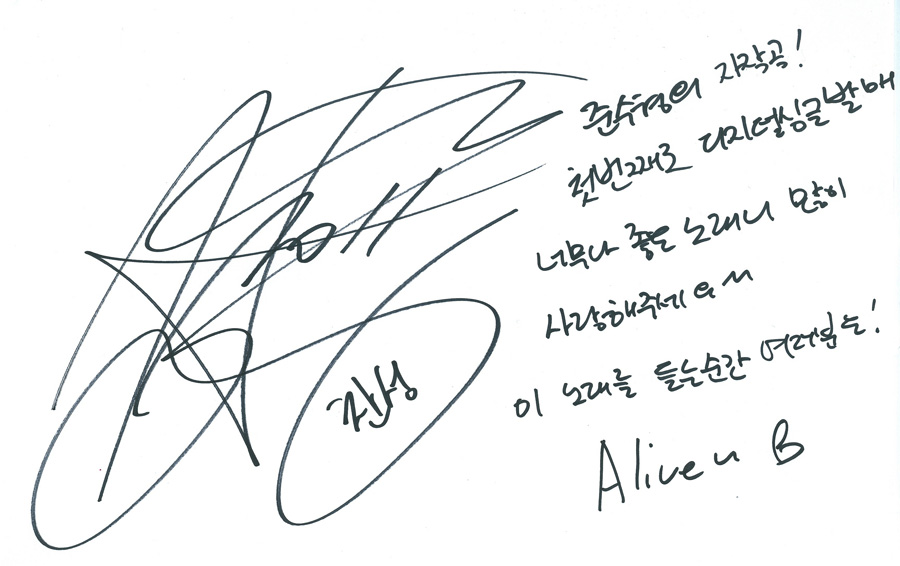 준수형의 자작곡!
첫번째로 디지털싱글발매
너무나 좋은 노래니 많이
사랑해주세요 ^^
이 노래를 듣는순간 여러분는!
Alive
B
2011
찬성